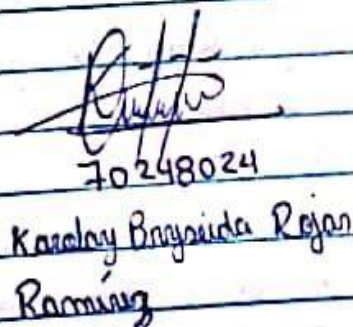 70248024
Karolay Bryseida Rojas
Ramírez